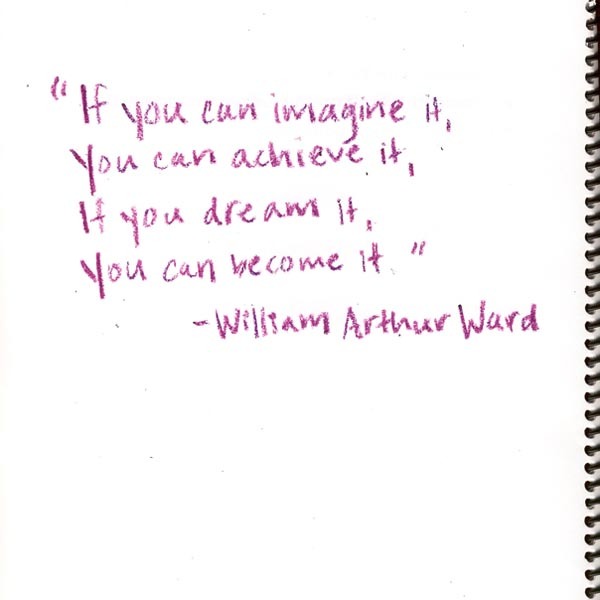 "If you can imagine it,
You can achieve it,
If you dream it,
You can become it."
-William Arthur Ward